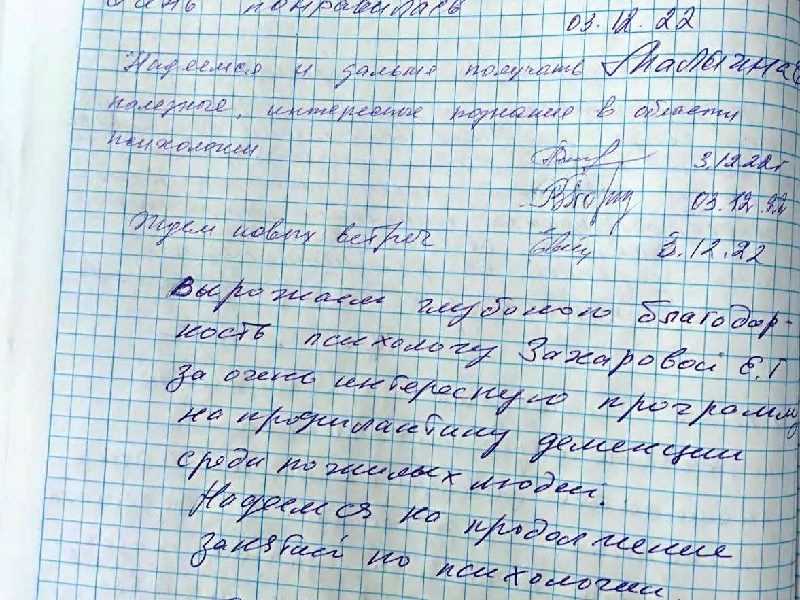 Очень понравилась
03.12.22
Надеемся и дальше получать Малыгина
полезные, интересные познания в области
психологии
3.12.22г
03.12.22
Ждем новых встреч
3.12.22
Вырожаем глубокою благодар-
ность психологу Захаровой Е.Г
за очень интересную программу
на профилактику деменции
среди пожилых людей.
Надеемся на продолжение
занятий по психологии